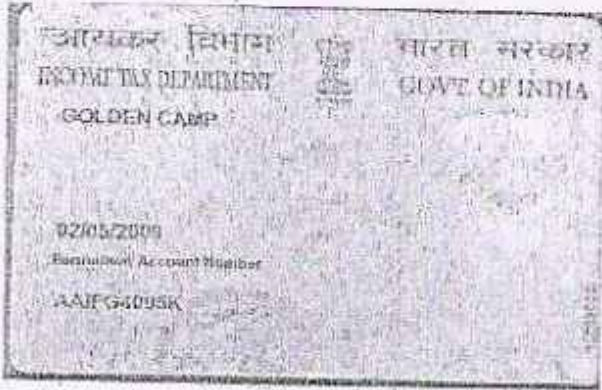 आयकर विभाग भारत सरकार
INCOME TAX DEPARTMENT GOVT OF INDIA
GOLDEN CAMP
02/05/2009
Permanent Account Number
AAIFG4095K